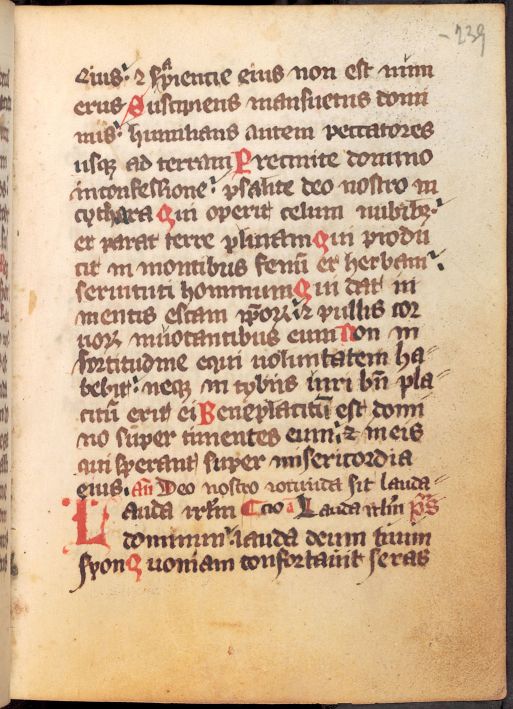 239
eius: ⁊ sapiencie eius non est num
erus Suscipiens mansuetus domi
nus: humilians autem peccatores
usqꝫ ad terram Precinite domino
inconfessione: psalite deo nostro in
cythara Qui operit celum nubibꝫ:
et parat terre pluuiam Qui produ
cit in montibus fenū et herbam:
seruituti hominum Qui dat iu
mentis escam ip̄oꝝ: ⁊ pullis cor
uoꝝ inuocantibus eum Non in
fortitudine equi uoluntatem ha=
bebit: neqꝫ in tybiis uiri bn̄ pla=
citū erit ei Beneplacitū est domi
no super timentes eum: ⁊ in eis
qui sperant super misericordia
eius. an̄ Deo nostro iocunda sit lauda=
Lauda irl̄m Ccio a Lauda irl̄m p̄s
dominum: lauda deum tuum
syon Quoniam confortauit seras